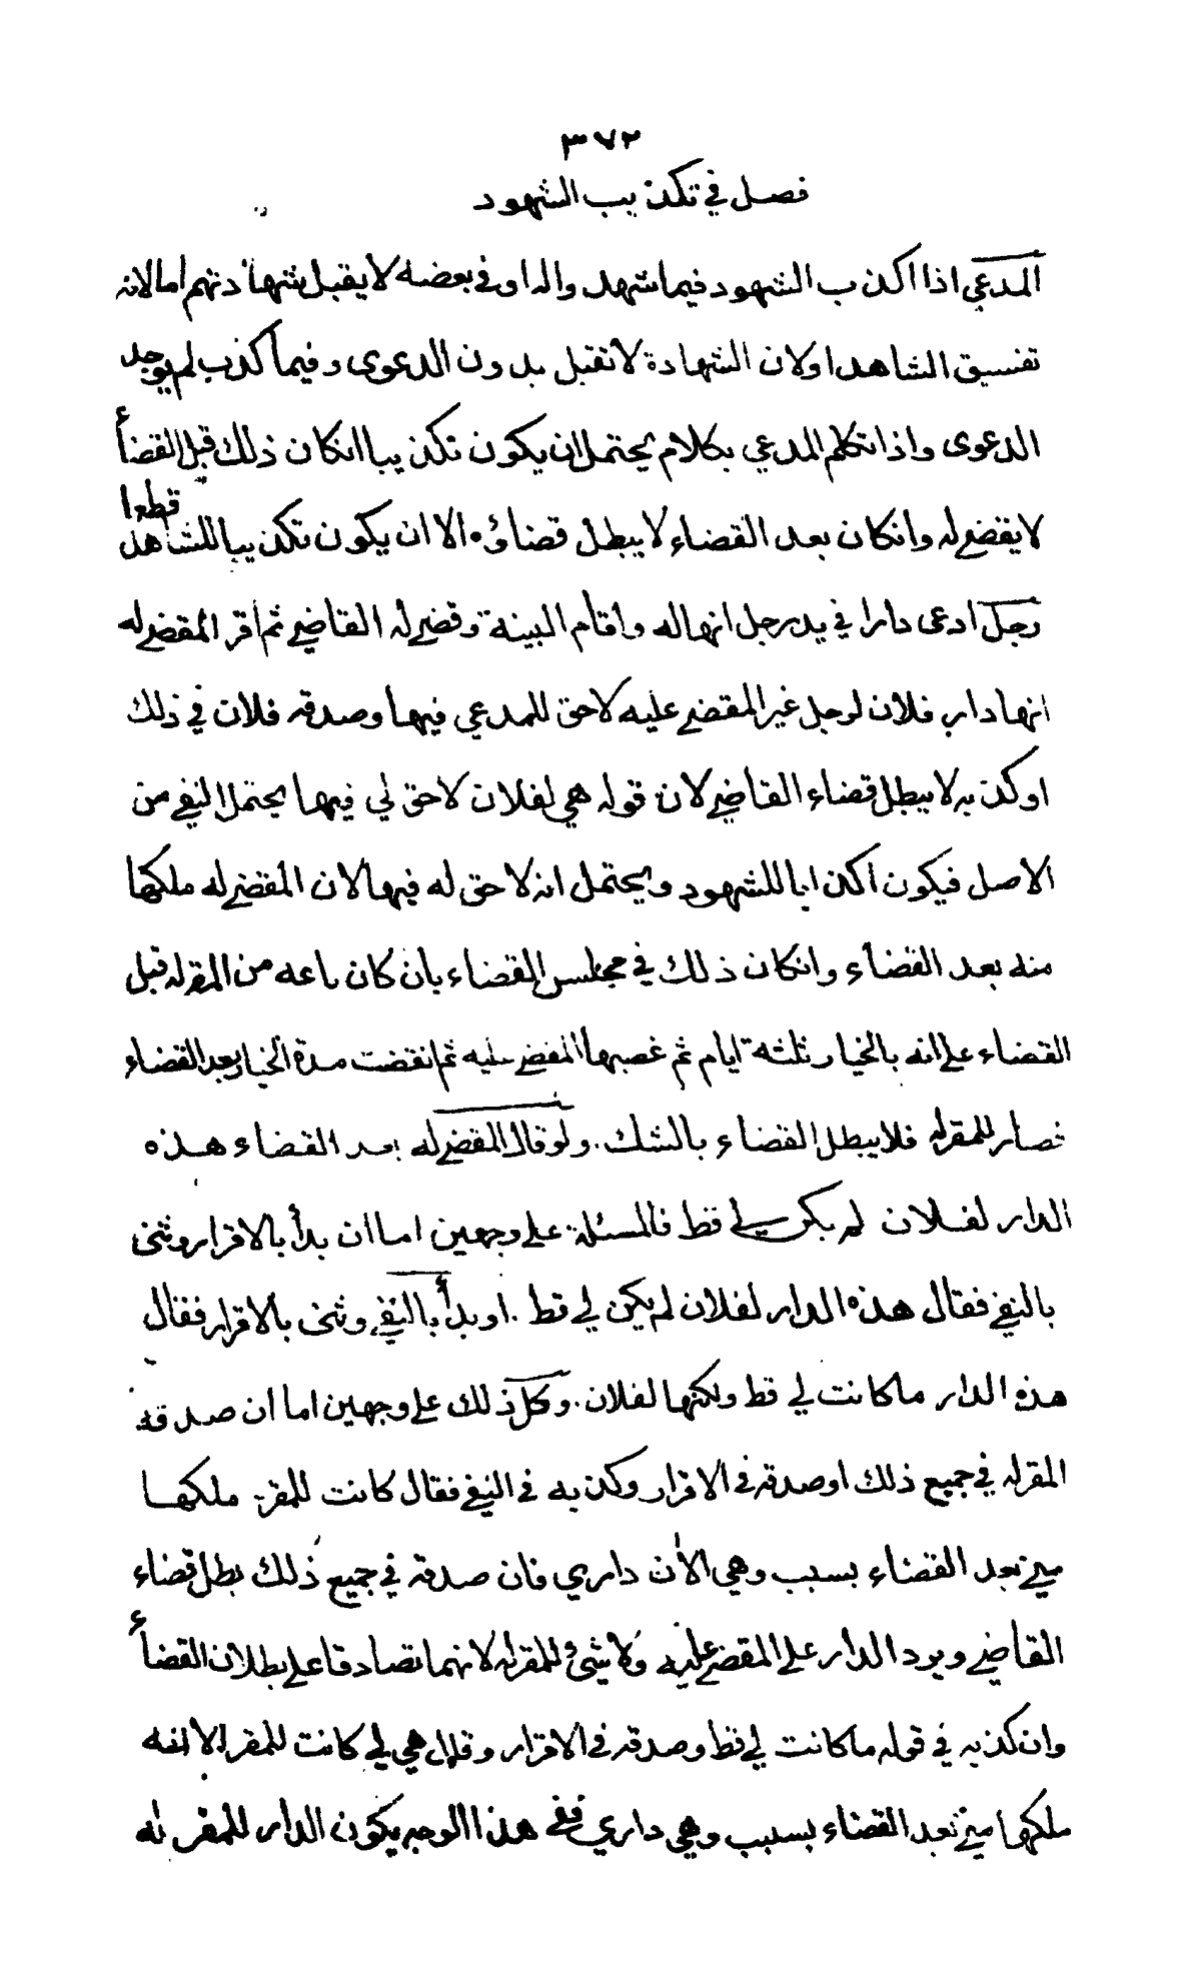 ٣٧٢
فصل في تكذيب الشهود
المدعي اذا اكذب الشهود فيما شهدوا له او في بعضه لا يقبل شهادتهم اما لانه
تفسيق الشاهد او لان الشهادة لا تقبل بدون الدعوى وفيما كذب لم يوجد
الدعوى واذا تكلم المدعي بكلام يحتمل ان يكون تكذيبا انكان ذلك قبل القضأ
لا يقضى له وانكان بعد القضاء لا يبطل قضاؤه الا ان يكون تكذيبا للشاهد قطعا
رجل ادعى دارا في يد رجل انها له واقام البينة وقضى له القاضي ثم اقر المقضي له
انها دار فلان لرجل غير المقضي عليه لا حق للمدعي فيها وصدقه فلان في ذلك
او كذبه لا يبطل قضاء القاضي لان قوله هي لفلان لا حق لي فيها يحتمل النفي من
الاصل فيكون اكذابا للشهود ويحتمل انه لا حق له فيها لان المقضي له ملكها
منه بعد القضاء وانكان ذلك في مجلس القضاء بان كان باعه من المقر له قبل
القضاء على انه بالخيار ثلثة ايام ثم غصبها المقضي عليه ثم انقضت مدة الخيار بعد القضاء
فصار للمقر له فلا يبطل القضاء بالشك . ولو قال المقضي له بعد القضاء هذه
الدار لفلان لم يكن لي قط فالمسئلة على وجهين اما ان بدأ بالاقرار وثنى
بالنفي فقال هذه الدار لفلان لم يكن لي قط . او بدأ بالنفي وثنى بالاقرار فقال
هذه الدار ما كانت لي قط ولكنها لفلان . وكل ذلك على وجهين اما ان صدقه
المقر له في جميع ذلك او صدقه في الاقرار وكذبه في النفي فقال كانت للمقر ملكها
مني بعد القضاء بسبب وهي الأن داري فان صدقه في جميع ذلك بطل قضاء
القاضي ويرد الدار على المقضي عليه ولا شئ للمقر له لانهما تصادقا على بطلان القضأ
وان كذبه في قوله ما كانت لي قط وصدقه في الاقرار وقال هي لي كانت للمقر الا انه
ملكها مني بعد القضاء بسبب وهي داري ففي هذا الوجه يكون الدار للمقر له